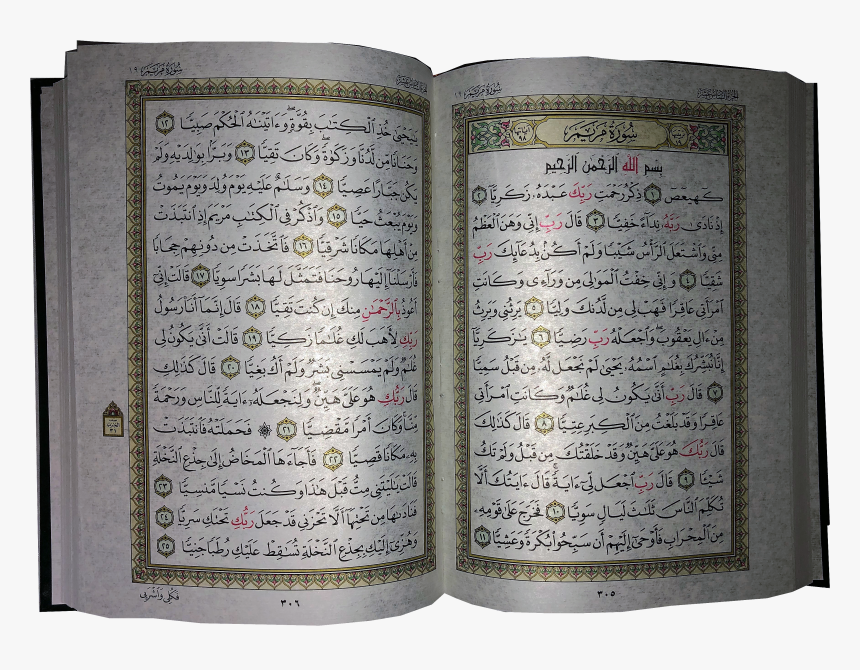 الجزء السادس عشر
سورة مريم ١٩
سُورَةُ مَرْيَمَ
آياتها ٩٨
بِسْمِ اللَّهِ الرَّحْمَٰنِ الرَّحِيمِ
كٓهيعٓصٓ ١ ذِكْرُ رَحْمَتِ رَبِّكَ عَبْدَهُۥ زَكَرِيَّآ ٢
إِذْ نَادَىٰ رَبَّهُۥ نِدَآءً خَفِيًّا ٣ قَالَ رَبِّ إِنِّي وَهَنَ ٱلْعَظْمُ
مِنِّي وَٱشْتَعَلَ ٱلرَّأْسُ شَيْبًا وَلَمْ أَكُنۢ بِدُعَآئِكَ رَبِّ
شَقِيًّا ٤ وَإِنِّي خِفْتُ ٱلْمَوَٰلِيَ مِن وَرَآءِي وَكَانَتِ
ٱمْرَأَتِي عَاقِرًا فَهَبْ لِي مِن لَّدُنكَ وَلِيًّا ٥ يَرِثُنِي وَيَرِثُ
مِنْ ءَالِ يَعْقُوبَ وَٱجْعَلْهُ رَبِّ رَضِيًّا ٦ يَٰزَكَرِيَّآ
إِنَّا نُبَشِّرُكَ بِغُلَٰمٍ ٱسْمُهُۥ يَحْيَىٰ لَمْ نَجْعَل لَّهُۥ مِن قَبْلُ سَمِيًّا
٧ قَالَ رَبِّ أَنَّىٰ يَكُونُ لِي غُلَٰمٌ وَكَانَتِ ٱمْرَأَتِي
عَاقِرًا وَقَدْ بَلَغْتُ مِنَ ٱلْكِبَرِ عِتِيًّا ٨ قَالَ كَذَٰلِكَ
قَالَ رَبُّكَ هُوَ عَلَيَّ هَيِّنٌ وَقَدْ خَلَقْتُكَ مِن قَبْلُ وَلَمْ تَكُ
شَيْـًٔا ٩ قَالَ رَبِّ ٱجْعَل لِّيٓ ءَايَةً قَالَ ءَايَتُكَ أَلَّا
تُكَلِّمَ ٱلنَّاسَ ثَلَٰثَ لَيَالٍ سَوِيًّا ١٠ فَخَرَجَ عَلَىٰ قَوْمِهِۦ
مِنَ ٱلْمِحْرَابِ فَأَوْحَىٰٓ إِلَيْهِمْ أَن سَبِّحُوا۟ بُكْرَةً وَعَشِيًّا ١١
٣٠٥
سورة مريم ١٩
يَٰيَحْيَىٰ خُذِ ٱلْكِتَٰبَ بِقُوَّةٍ وَءَاتَيْنَٰهُ ٱلْحُكْمَ صَبِيًّا ١٢
وَحَنَانًا مِّن لَّدُنَّا وَزَكَوٰةً وَكَانَ تَقِيًّا ١٣ وَبَرًّۢا بِوَٰلِدَيْهِ وَلَمْ
يَكُن جَبَّارًا عَصِيًّا ١٤ وَسَلَٰمٌ عَلَيْهِ يَوْمَ وُلِدَ وَيَوْمَ يَمُوتُ
وَيَوْمَ يُبْعَثُ حَيًّا ١٥ وَٱذْكُرْ فِي ٱلْكِتَٰبِ مَرْيَمَ إِذِ ٱنتَبَذَتْ
مِنْ أَهْلِهَا مَكَانًا شَرْقِيًّا ١٦ فَٱتَّخَذَتْ مِن دُونِهِمْ حِجَابًا
فَأَرْسَلْنَآ إِلَيْهَا رُوحَنَا فَتَمَثَّلَ لَهَا بَشَرًا سَوِيًّا ١٧ قَالَتْ إِنِّيٓ
أَعُوذُ بِٱلرَّحْمَٰنِ مِنكَ إِن كُنتَ تَقِيًّا ١٨ قَالَ إِنَّمَآ أَنَا۠ رَسُولُ
رَبِّكِ لِأَهَبَ لَكِ غُلَٰمًا زَكِيًّا ١٩ قَالَتْ أَنَّىٰ يَكُونُ لِي
غُلَٰمٌ وَلَمْ يَمْسَسْنِي بَشَرٌ وَلَمْ أَكُ بَغِيًّا ٢٠ قَالَ كَذَٰلِكِ
قَالَ رَبُّكِ هُوَ عَلَيَّ هَيِّنٌ وَلِنَجْعَلَهُۥٓ ءَايَةً لِّلنَّاسِ وَرَحْمَةً
مِّنَّا وَكَانَ أَمْرًا مَّقْضِيًّا ٢١ ۞ فَحَمَلَتْهُ فَٱنتَبَذَتْ
بِهِۦ مَكَانًا قَصِيًّا ٢٢ فَأَجَآءَهَا ٱلْمَخَاضُ إِلَىٰ جِذْعِ ٱلنَّخْلَةِ
قَالَتْ يَٰلَيْتَنِي مِتُّ قَبْلَ هَٰذَا وَكُنتُ نَسْيًا مَّنسِيًّا ٢٣
فَنَادَىٰهَا مِن تَحْتِهَآ أَلَّا تَحْزَنِي قَدْ جَعَلَ رَبُّكِ تَحْتَكِ سَرِيًّا ٢٤
وَهُزِّيٓ إِلَيْكِ بِجِذْعِ ٱلنَّخْلَةِ تُسَٰقِطْ عَلَيْكِ رُطَبًا جَنِيًّا ٢٥
فَكُلِي وَٱشْرَبِي
٣٠٦